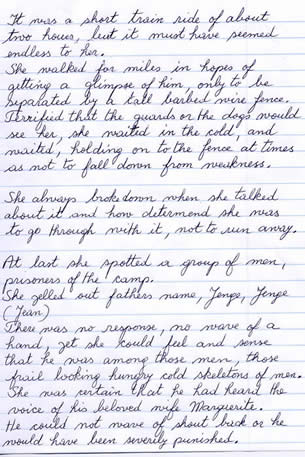 It was a short train ride of about
two hours, but it must have seemed
endless to her.
She walked for miles in hopes of
getting a glimpse of him, only to be
separated by a tall barbed wire fence.
Terrified that the guards or the dogs would
see her, she waited in the cold, and
waited, holding on to the fence at times
as not to fall down from weakness.
She always broke down when she talked
about it and how determend she was
to go through with it, not to run away.
At last she spotted a group of men,
prisoners of the camp.
She yelled out fathers name, Jenge, Jenge
(Jean)
There was no response, no wave of a
hand, yet she could feel and sense
that he was among those men, those
frail looking hungry cold skeletons of men.
She was certain that he had heard the
voice of his beloved wife Marguerite.
He could not wave of shout back or he
would have been severily punished.